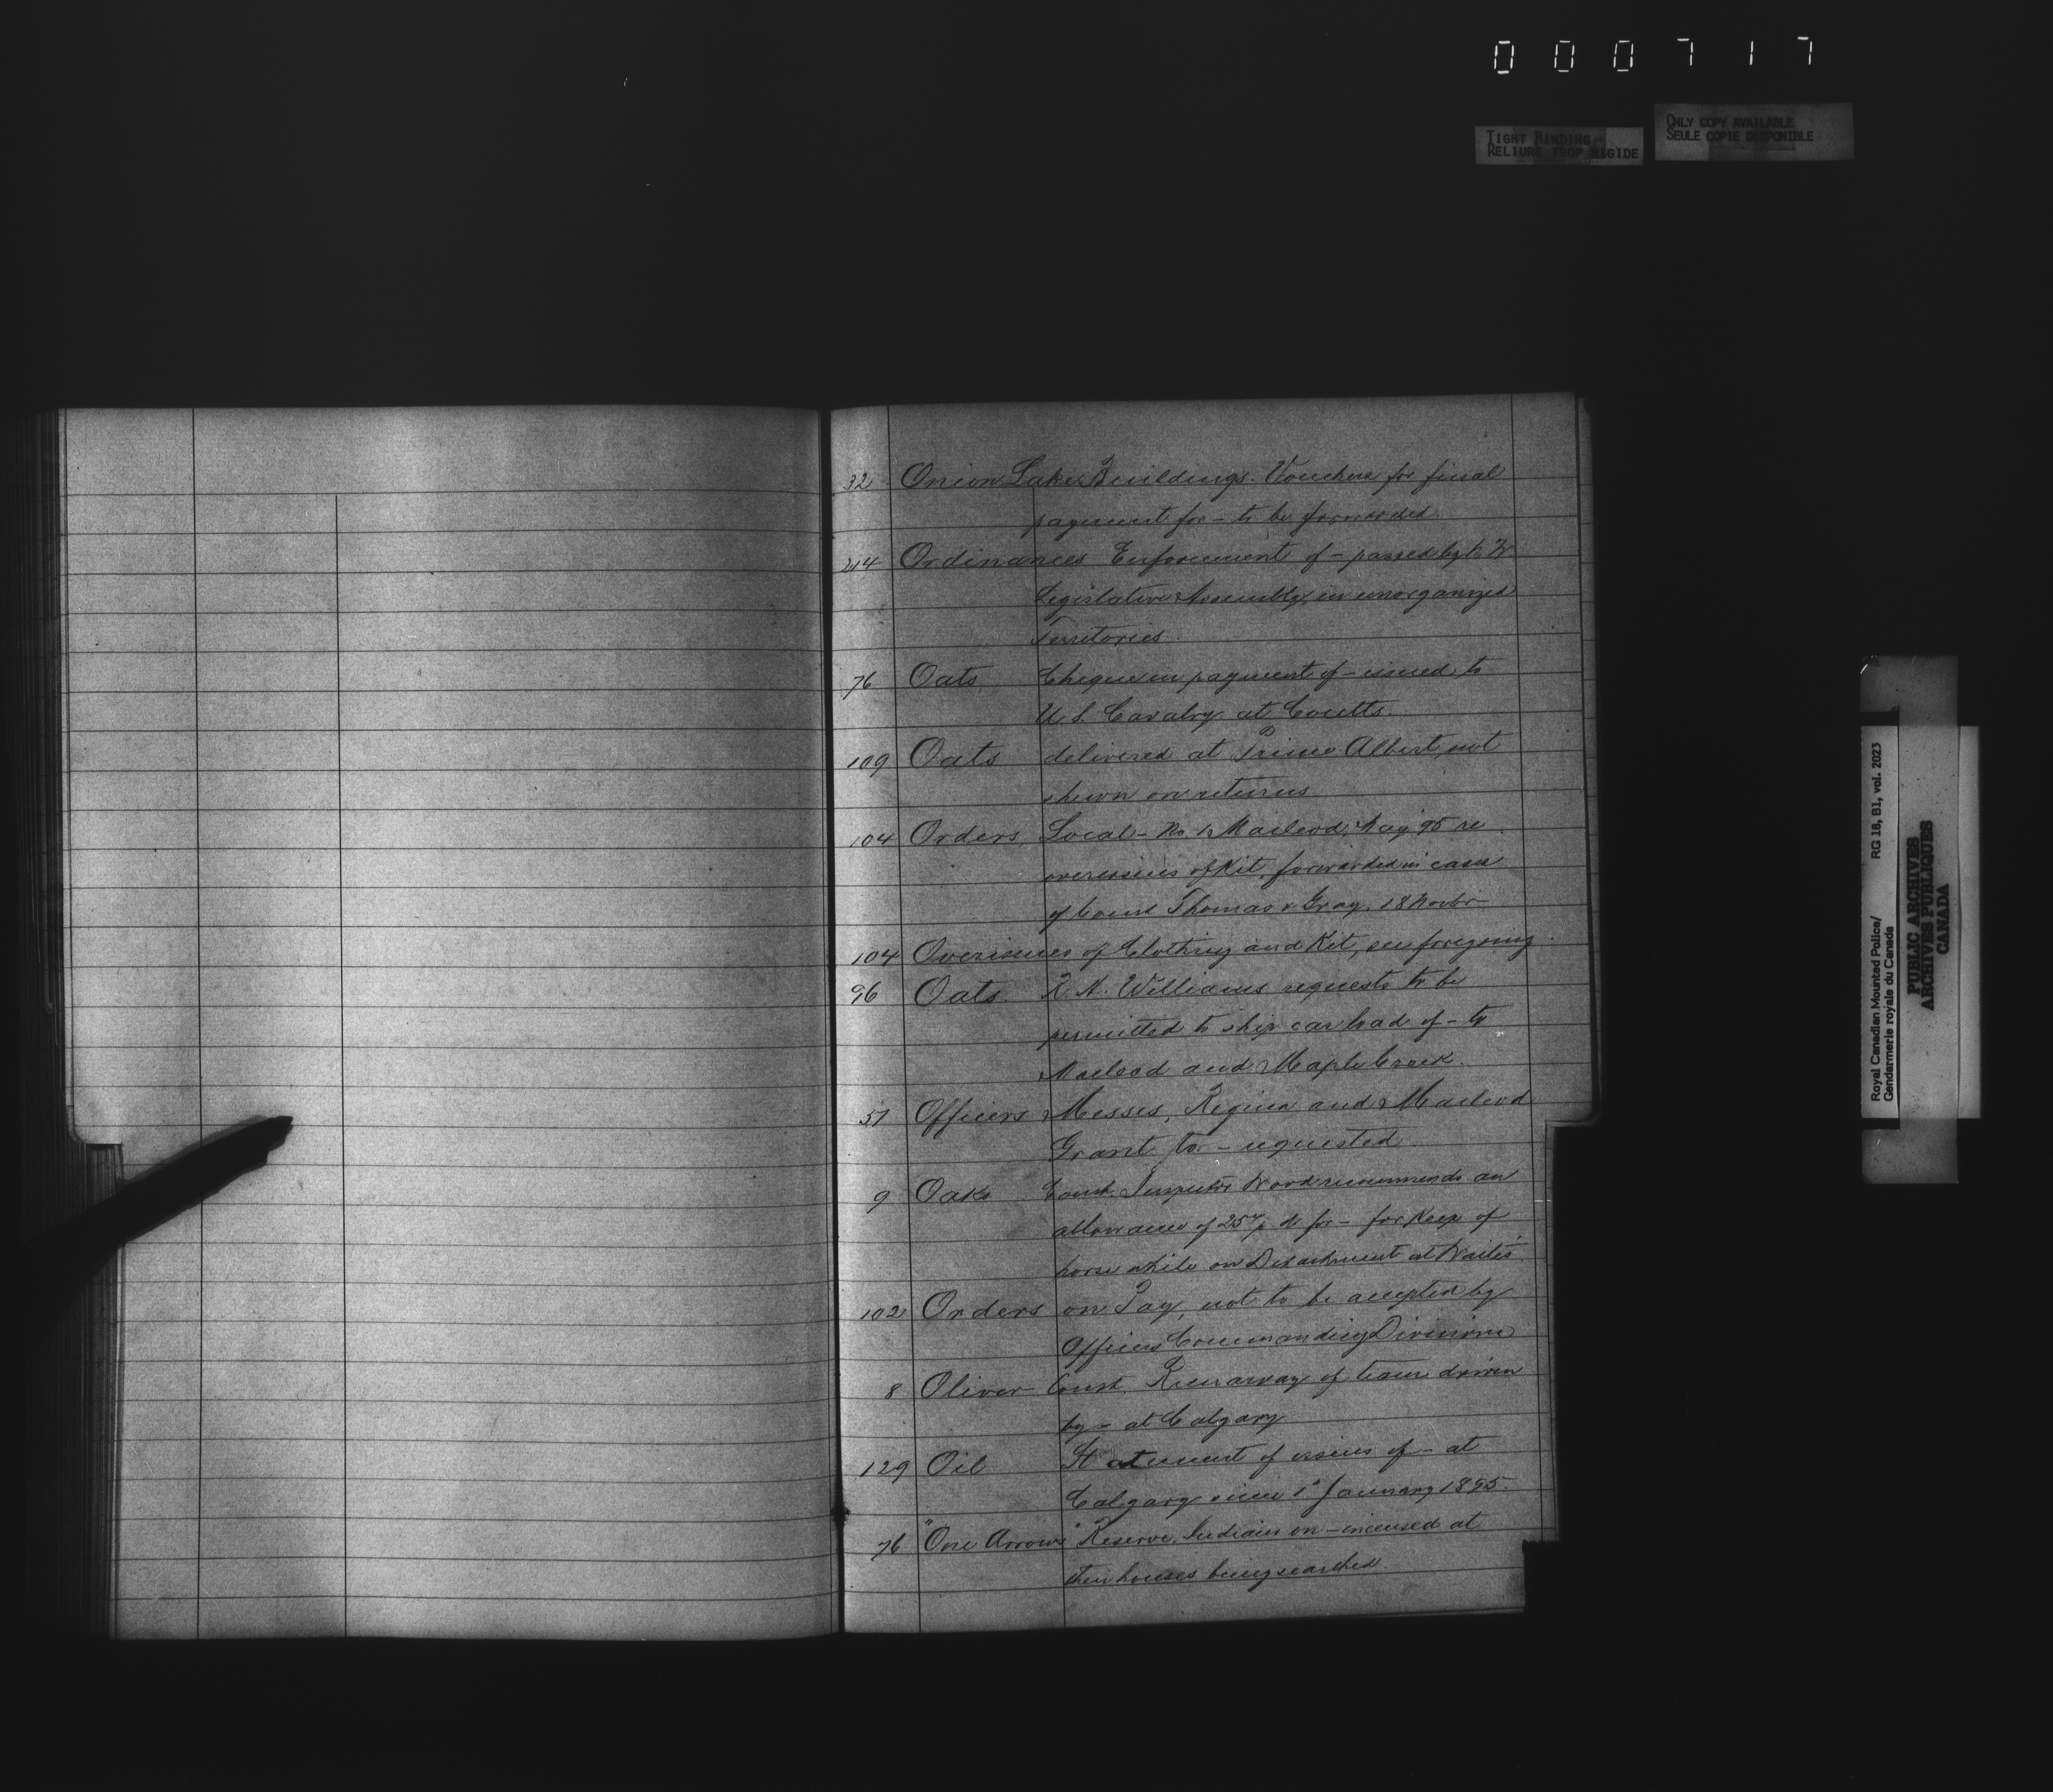 000717
TIGHT BINDING
RELIURE TROP RIGIDE
ONLY COPY AVAILABLE
SEULE COPIE DISPONIBLE
32 Onion Lake Buildings. Vouchers for final
payment for - to be forwarded.
214 Ordinances Enforcement of - passed by N.W
Legislative Assembly, in unorganized
Territories.
76 Oats Cheque in payment of - issued to
U.S. Cavalry at Coutts.
109 Oats delivered at Prince Albert, not
shewn on returns
104 Orders, Local - No. 1 Macleod, May 95 re
overissues of Kit, forwarded in case
of Const Thomas & Gray, 18 Novbr
104 Overissues of Clothing and Kit, see foregoing.
96 Oats. Williams requests to be
permitted to ship car load of - to
Macleod and Maple Creek.
51 Officers Messes, Regina and Macleod
Grant for - requested.
9 Oaks Const. Inspector Wood recommends an
allowance of 25 for - for keep of
horse while on Detachment at
102 Orders on Pay, not to be accepted by
Officers Commanding Divisions
8 Oliver Const. Runaway of team driven
by - at Calgary.
129 Oil Statement of issues of - at
Calgary since 1st January 1895.
76 "One Arrow's" Reserve, Indians on - incensed at
their houses being searched.
Royal Canadian Mounted Police/ RG 18, B1, vol. 2023
Gendarmerie royale du Canada
PUBLIC ARCHIVES
ARCHIVES PUBLIQUES
CANADA